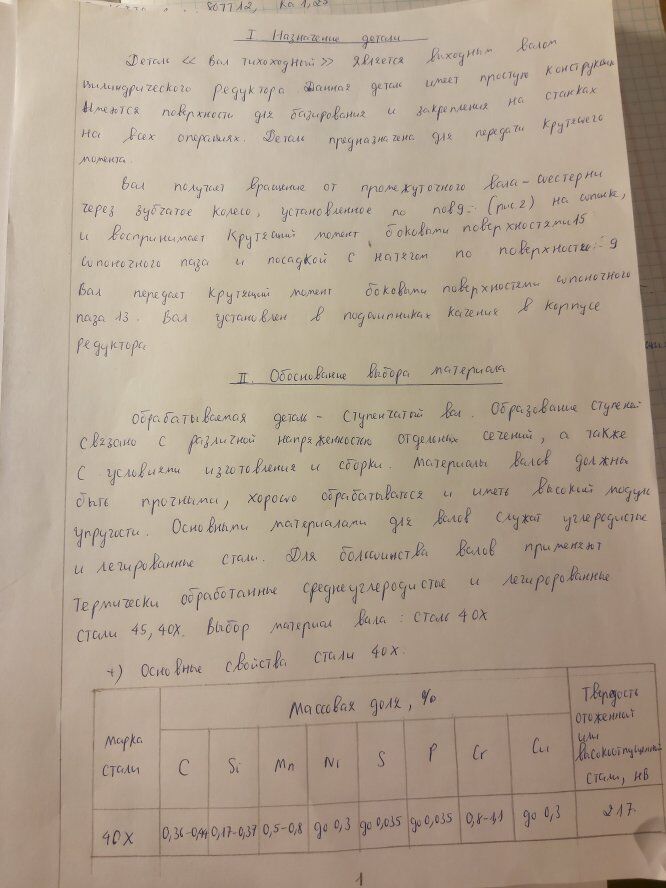 I. Назначение детали
Деталь << Вал тихоходный >> является выходным валом
цилиндрического редуктора. Данная деталь имеет простую конструкцию
Имеются поверхности для базирования и закрепления на станках
на всех операциях. Деталь предназначена для передачи крутящего
момента.
Вал получает вращение от промежуточного вала-шестерни
через зубчатое колесо, установленное по пов 9 (рис.2) на шпонке,
и воспринимает крутящий момент боковыми поверхностями 15
шпоночного паза и посадкой с натягом по поверхности 9
Вал передает крутящий момент боковыми поверхностями шпоночного
паза 13. Вал установлен в подшипниках качения в корпусе
редуктора
II. Обоснование выбора материала
Обрабатываемая деталь - ступенчатый вал. Образование ступеней
связано с различной напряженностью отдельных сечений, а также
с условиями изготовления и сборки. Материалы валов должны
быть прочными, хорошо обрабатываться и иметь высокий модуль
упругости. Основными материалами для валов служат углеродистые
и легированные стали. Для большинства валов применяют
термически обработанные среднеуглеродистые и легированные
стали 45, 40Х. Выбор материал вала: сталь 40Х
+) Основные свойства стали 40Х.
Марка стали
Массовая доля, %
Твердость отоженной или высокоотпущенной стали, НВ
C Si Mn Ni S P Cr Cu
40Х 0,36-0,44 0,17-0,37 0,5-0,8 до 0,3 до 0,035 до 0,035 0,8-1,1 до 0,3 217
1